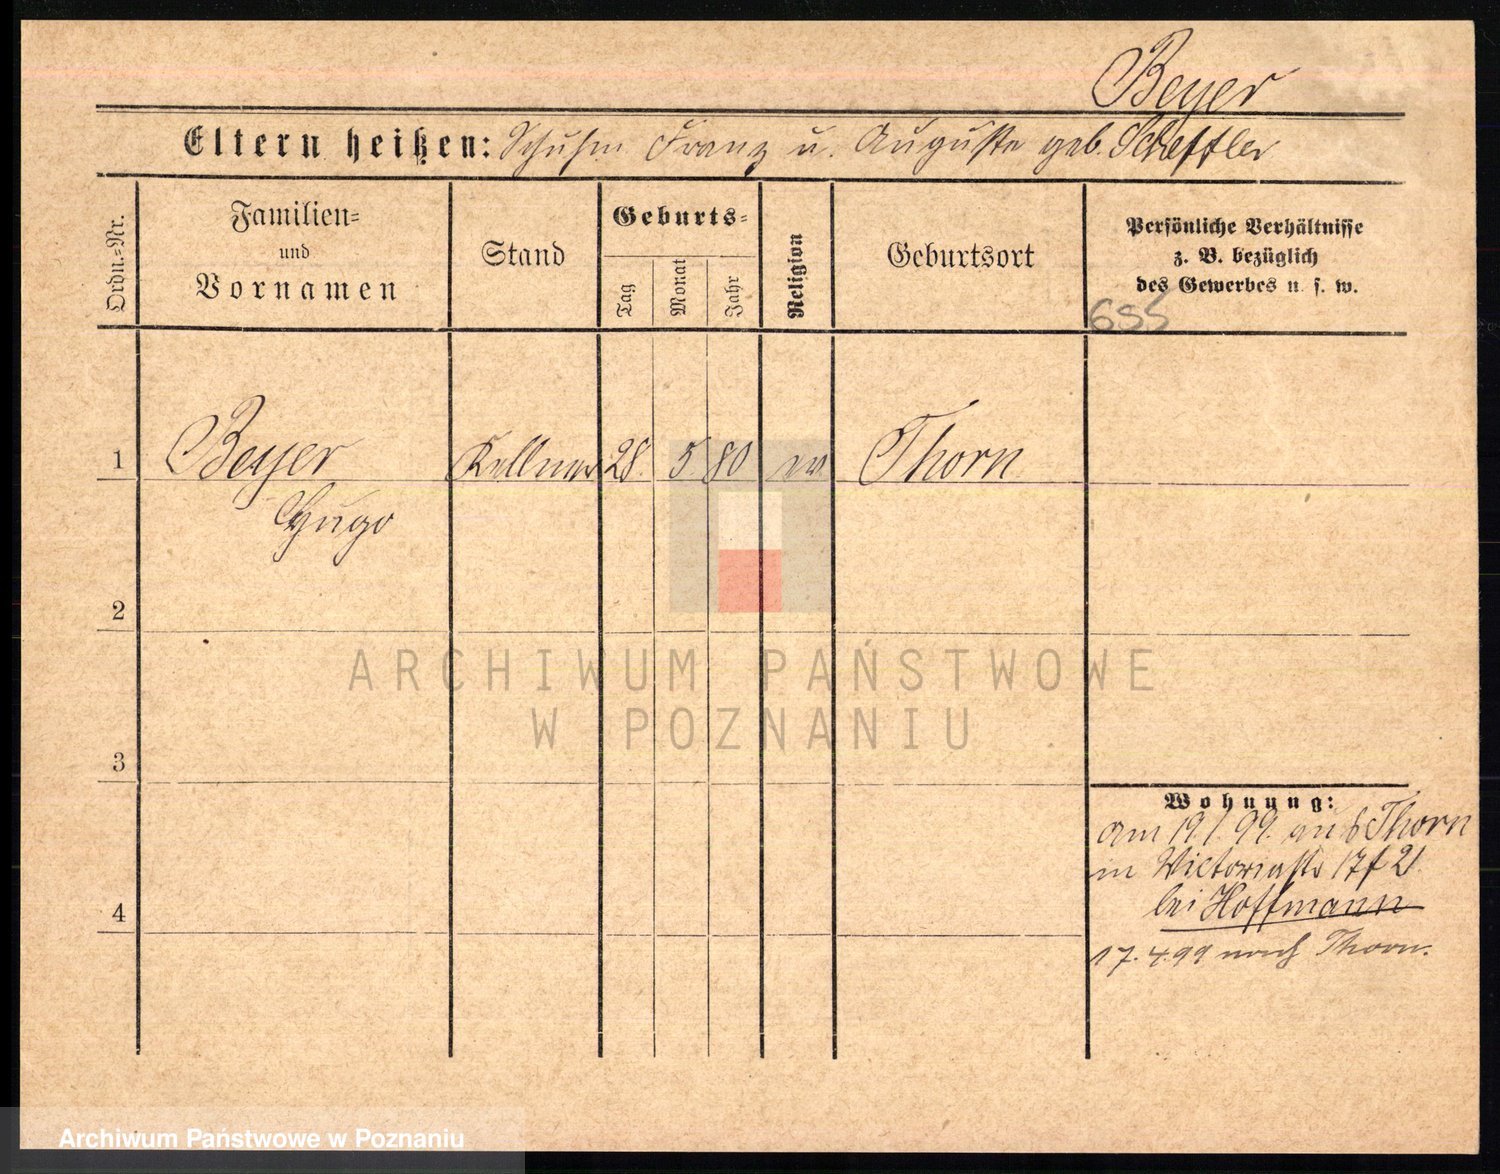 Beyer
Eltern heißen: Schuhm Franz u. Auguste geb. Scheffler
Ordn.-Nr.
Familien-
und
Vornamen
Stand
Geburts-
Tag
Monat
Jahr
Religion
Geburtsort
Persönliche Verhältnisse
z. B. bezüglich
des Gewerbes u. s. w.
655
1 Beyer Kellner 28. 5 80 ev Thorn
Hugo
2
ARCHIWUM PAŃSTWOWE
W POZNANIU
3
Wohnung:
am 19/1. 99. aus Thorn
in Victoriastr 17 f 21.
4
bei Hoffmann
17. 4.99 nach Thorn.
Archiwum Państwowe w Poznaniu